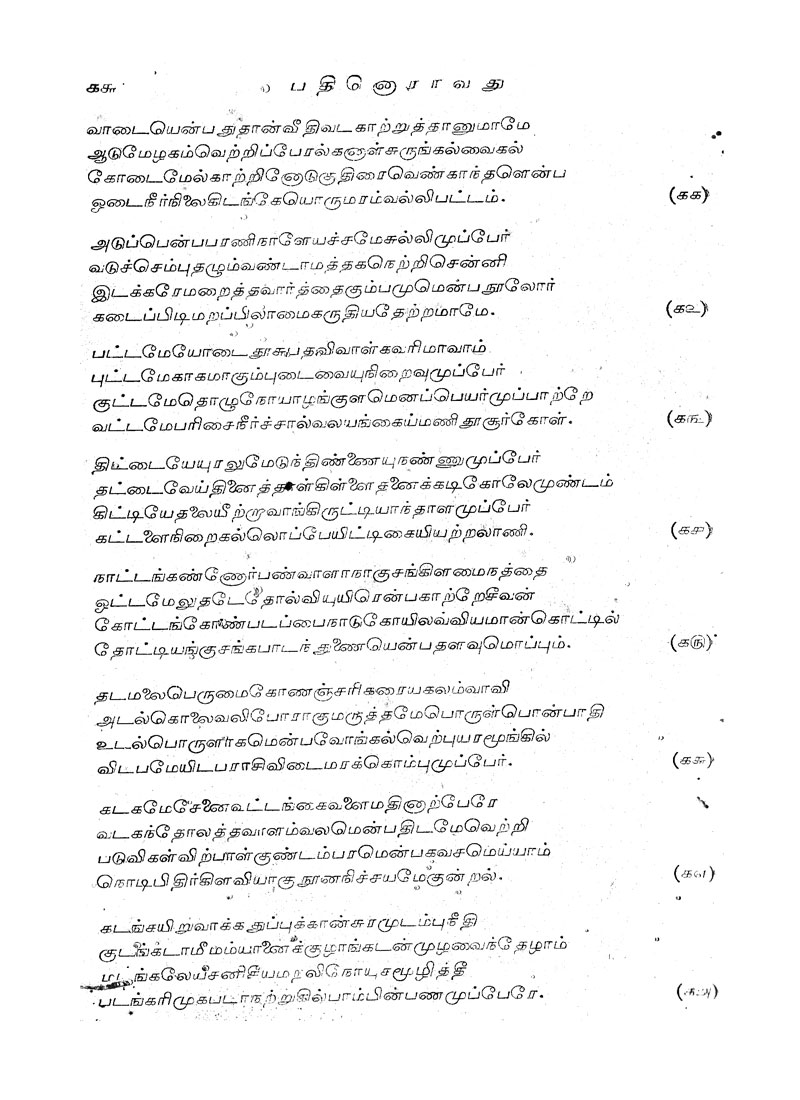 கசு பதினொராவது
வாடையென்பதுதான்வீதிவடகாற்றுத்தானுமாமே
ஆடுமேழகம்வெற்றிப்பேரல்களுள்சுருங்கல்வைகல்
கோடைமேல்காற்றினோடுகுதிரைவெண்காந்தளென்ப
ஓடைநீர்நிலைகிடங்கேயொருமரம்வல்லிபட்டம். (கக)
அடுப்பென்பபரணிநாளேயச்சமேசுல்லிமுப்பேர்
வடுச்செம்புதழும்வண்டாமத்தகநெற்றிசென்னி
இடக்கரேமறைத்தவார்த்தைகும்பமுமென்பநூலோர்
கடைப்பிடிமறப்பிலாமைகருதியதேற்றமாமே. (கஉ)
பட்டமேயோடைதூசுபதவிவாள்கவரிமாவாம்
புட்டமேகாகமாகும்புடைவையுநிறைவுமுப்பேர்
குட்டமேதொழுநோயாழங்குளமெனப்பெயர்முப்பாற்றே
வட்டமேபரிசைநீர்ச்சால்வலயங்கைம்மணிதூசூர்கோள். (கங)
திட்டையேயுரலுமேடுந்திண்ணையுநண்ணுமுப்பேர்
தட்டைவேய்தினைத்தாள்கிள்ளைதனைக்கடிகோலேமுண்டம்
கிட்டியேதலையீற்றாவாங்கிருட்டியாந்தாளமுப்பேர்
கட்டளைநிறைகல்லொப்பேயிட்டிகையியற்றலாணி. (கச)
நாட்டங்கண்ணோர்பண்வாளாநாகுசங்கிளமைநத்தை
ஓட்டமேலுதடேதோல்வியுயிரென்பகாற்றேசீவன்
கோட்டங்கோண்படப்பைநாடுகோயிலவ்வியமான்கொட்டில்
தோட்டியங்குசங்கபாடந்துணையென்பதளவுமொப்பும். (கரு)
தடமலைபெருமைகோணஞ்சரிகரையகலம்வாவி
அடல்கொலைவலிபோராகுமருத்தமேபொருள்பொன்பாதி
உடல்பொருளாகமென்பவோங்கல்வெற்புயரமூங்கில்
விடபமேயிடபராசிவிடைமரக்கொம்புமுப்பேர். (கசு)
கடகமேசேனைவட்டங்கைவளைமதினாற்பேரே
வடகந்தோலத்தவாளம்வலமென்பதிடமேவெற்றி
படுவிகள்விற்பாள்குண்டம்பரமென்பகவசமெய்யாம்
நொடிபிதிர்கிளவியாகுநூணநிச்சயமேகுன்றல். (கஎ)
கடங்கயிறுவாக்கதுப்புக்கான்சுரமுடம்புநீதி
குடங்கடாமீமம்யானைக்குழாங்கடன்முழவைந்தேழாம்
மடங்கலேயீசனிசீயமறலிநோயுசமூழித்தீ
படங்கரிமுகபடாநற்றுகில்பாம்பின்பணமுப்பேரே. (கஅ)